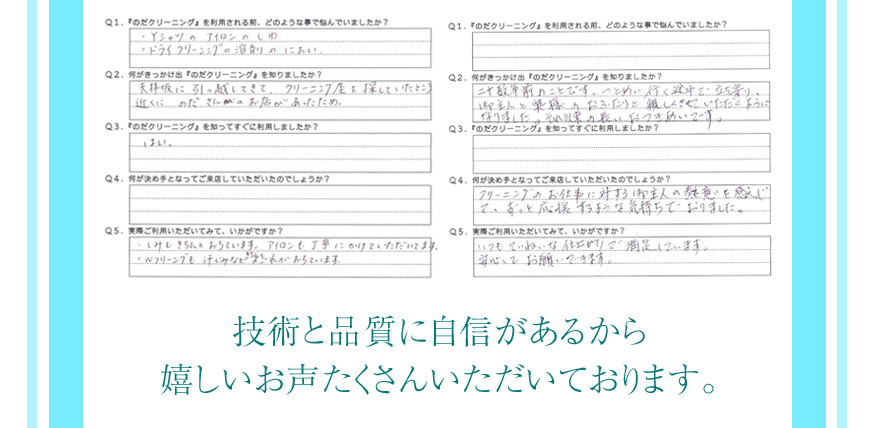 Q1. 『のだクリーニング』を利用される前、どのような事で悩んでいましたか？
・Yシャツの アイロンの しわ
・ドライクリーニングの溶剤の におい.
Q2. 何がきっかけ出『のだクリーニング』を知りましたか？
天拝坂に 引っ越してきて、クリーニング屋を 探していたところ
近くに のださんの お店が あったため.
Q3. 『のだクリーニング』を知ってすぐに利用しましたか？
はい。
Q4. 何が決め手となってご来店していただいたのでしょうか？
Q5. 実際ご利用いただいてみて、いかがですか？
・しみも きちんと おちています。アイロンも 丁寧に かけていただいてます.
・Wクリーニングも 汗じみなど 汚れが おちています.
Q1. 『のだクリーニング』を利用される前、どのような事で悩んでいましたか？
Q2. 何がきっかけ出『のだクリーニング』を知りましたか？
二十数年前のことです。つとめに 行く途中で 立ち寄り、
御主人と 奥様の おふたりと 親しくさせていただくように
なりました。それ以来の長い おつきあいです。
Q3. 『のだクリーニング』を知ってすぐに利用しましたか？
Q4. 何が決め手となってご来店していただいたのでしょうか？
クリーニングの お仕事に 対する 御主人の 熱意を 感じ
て、ずっと 応援 するような 気持ちで おりました。
Q5. 実際ご利用いただいてみて、いかがですか？
いつも ていねいな 仕上がりで 満足しています。
安心して お願いできます。
技術と品質に自信があるから
嬉しいお声たくさんいただいております。